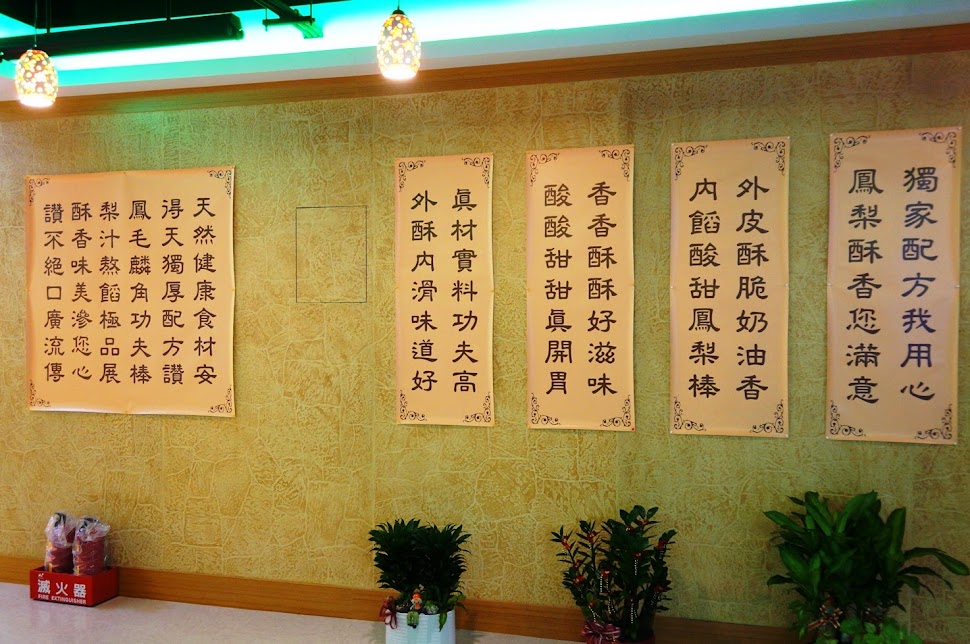 獨家配方我用心
鳳梨酥香您滿意
外皮酥脆奶油香
內餡酸甜鳳梨棒
香香酥酥好滋味
酸酸甜甜真開胃
真材實料功夫高
外酥內滑味道好
天然健康食材安
得天獨厚配方讚
鳳毛麟角功夫棒
梨汁熬餡極品展
酥香味美滲您心
讚不絕口廣流傳
滅火器
FIRE EXTINGUISHER